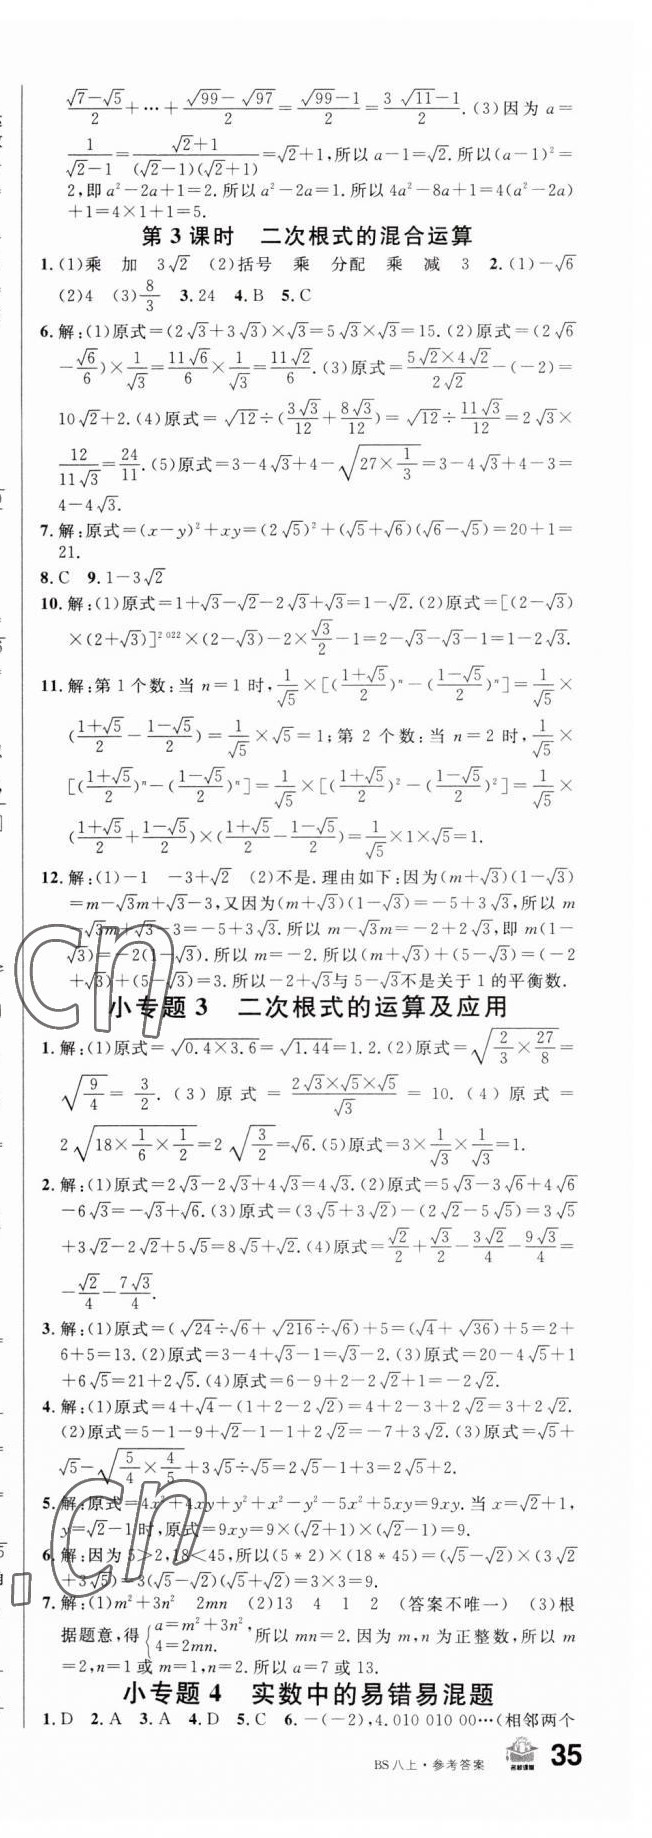 (√7-√5)/2+…+(√99-√97)/2=(√99-1)/2=(3√11-1)/2.(3)因为a=
1/(√2-1)=(√2+1)/((√2-1)(√2+1))=√2+1,所以a-1=√2.所以(a-1)²=
2,即a²-2a+1=2.所以a²-2a=1.所以4a²-8a+1=4(a²-2a)
+1=4×1+1=5.
第3课时 二次根式的混合运算
1.(1)乘 加 3√2 (2)括号 乘 分配 乘 减 3 2.(1)-√6
(2)4 (3)8/3 3.24 4.B 5.C
6.解:(1)原式=(2√3+3√3)×√3=5√3×√3=15.(2)原式=(2√6
-√6/6)×1/√3=11√6/6×1/√3=11√2/6.(3)原式=(5√2×4√2)/(2√2)-(-2)=
10√2+2.(4)原式=√12÷(3√3/12+8√3/12)=√12÷11√3/12=2√3×
12/(11√3)=24/11.(5)原式=3-4√3+4-√(27×1/3)=3-4√3+4-3=
4-4√3.
7.解:原式=(x-y)²+xy=(2√5)²+(√5+√6)(√6-√5)=20+1=
21.
8.C 9.1-3√2
10.解:(1)原式=1+√3-√2-2√3+√3=1-√2.(2)原式=[(2-√3)
×(2+√3)]²⁰²²×(2-√3)-2×√3/2-1=2-√3-√3-1=1-2√3.
11.解:第1个数:当n=1时,1/√5×[((1+√5)/2)ⁿ-((1-√5)/2)ⁿ]=1/√5×
((1+√5)/2-(1-√5)/2)=1/√5×√5=1;第2个数:当n=2时,1/√5×
[((1+√5)/2)ⁿ-((1-√5)/2)ⁿ]=1/√5×[((1+√5)/2)²-((1-√5)/2)²]=1/√5×
((1+√5)/2+(1-√5)/2)×((1+√5)/2-(1-√5)/2)=1/√5×1×√5=1.
12.解:(1)-1 -3+√2 (2)不是.理由如下:因为(m+√3)(1-√3)
=m-√3m+√3-3,又因为(m+√3)(1-√3)=-5+3√3,所以m
-√3m+√3-3=-5+3√3.所以m-√3m=-2+2√3,即m(1-
√3)=-2(1-√3).所以m=-2.所以(m+√3)+(5-√3)=(-2
+√3)+(5-√3)=3.所以-2+√3与5-√3不是关于1的平衡数.
小专题3 二次根式的运算及应用
1.解:(1)原式=√(0.4×3.6)=√1.44=1.2.(2)原式=√(2/3×27/8)=
√(9/4)=3/2.(3)原式=(2√3×√5×√5)/√3=10.(4)原式=
2√(18×1/6×1/2)=2√(3/2)=√6.(5)原式=3×1/√3×1/√3=1.
2.解:(1)原式=2√3-2√3+4√3=4√3.(2)原式=5√3-3√6+4√6
-6√3=-√3+√6.(3)原式=(3√5+3√2)-(2√2-5√5)=3√5
+3√2-2√2+5√5=8√5+√2.(4)原式=√2/2+√3/2-3√2/4-9√3/4=
-√2/4-7√3/4.
3.解:(1)原式=(√24÷√6+√216÷√6)+5=(√4+√36)+5=2+
6+5=13.(2)原式=3-4+√3-1=√3-2.(3)原式=20-4√5+1
+6√5=21+2√5.(4)原式=6-9+2-2√2+1=-2√2.
4.解:(1)原式=4+√4-(1+2-2√2)=4+2-3+2√2=3+2√2.
(2)原式=5-1-9+√2-1-1+2√2=-7+3√2.(3)原式=√5+
√5-√(5/4×4/5)+3√5÷√5=2√5-1+3=2√5+2.
5.解:原式=4x²+4xy+y²+x²-y²-5x²+5xy=9xy.当x=√2+1,
y=√2-1时,原式=9xy=9×(√2+1)(√2-1)=9.
6.解:因为5>2,18<45,所以(5*2)×(18*45)=(√5-√2)×(3√2
+3√5)=3(√5-√2)(√5+√2)=3×3=9.
7.解:(1)m²+3n² 2mn (2)13 4 1 2 (答案不唯一) (3)根
据题意,得{a=m²+3n²,4=2mn.所以mn=2.因为m,n为正整数,所以m
=2,n=1或m=1,n=2.所以a=7或13.
小专题4 实数中的易错易混题
1.D 2.A 3.A 4.D 5.C 6.-(-2),4.010 010 00…(相邻两个
BS八上·参考答案 名校课堂 35